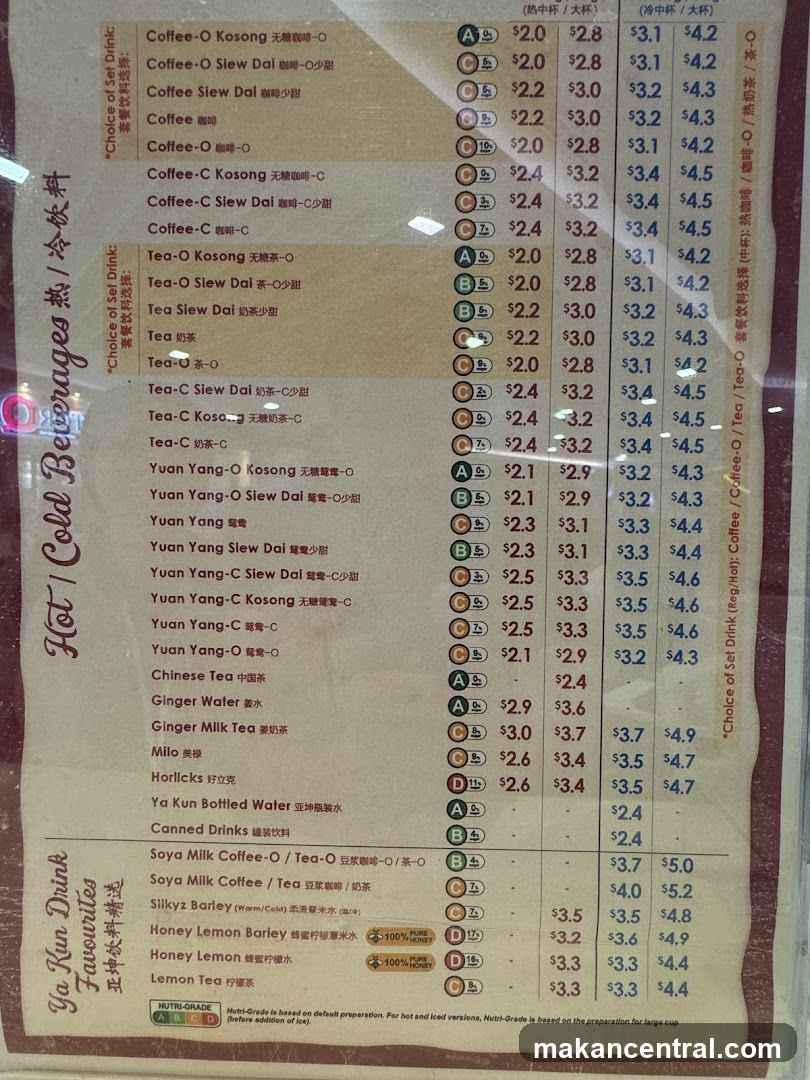 (热中杯 / 大杯) (冷中杯 / 大杯)
*Choice of Set Drink:
套餐饮料选择:
Coffee-O Kosong 无糖咖啡-O A 0% $2.0 $2.8 $3.1 $4.2
Coffee-O Siew Dai 咖啡-O少甜 C 5% $2.0 $2.8 $3.1 $4.2
Coffee Siew Dai 咖啡少甜 C 5% $2.2 $3.0 $3.2 $4.3
Coffee 咖啡 C 9% $2.2 $3.0 $3.2 $4.3
Coffee-O 咖啡-O C 10% $2.0 $2.8 $3.1 $4.2
Hot / Cold Beverages 热 / 冷饮料
Coffee-C Kosong 无糖咖啡-C C 0% $2.4 $3.2 $3.4 $4.5
Coffee-C Siew Dai 咖啡-C少甜 C 3% $2.4 $3.2 $3.4 $4.5
Coffee-C 咖啡-C C 7% $2.4 $3.2 $3.4 $4.5
*Choice of Set Drink:
套餐饮料选择:
Tea-O Kosong 无糖茶-O A 0% $2.0 $2.8 $3.1 $4.2
Tea-O Siew Dai 茶-O少甜 B 5% $2.0 $2.8 $3.1 $4.2
Tea Siew Dai 奶茶少甜 B 5% $2.2 $3.0 $3.2 $4.3
Tea 奶茶 C 9% $2.2 $3.0 $3.2 $4.3
Tea-O 茶-O C 9% $2.0 $2.8 $3.1 $4.2
Tea-C Siew Dai 奶茶-C少甜 C 2% $2.4 $3.2 $3.4 $4.5
Tea-C Kosong 无糖奶茶-C C 0% $2.4 $3.2 $3.4 $4.5
Tea-C 奶茶-C C 7% $2.4 $3.2 $3.4 $4.5
Yuan Yang-O Kosong 无糖鸳鸯-O A 0% $2.1 $2.9 $3.2 $4.3
Yuan Yang-O Siew Dai 鸳鸯-O少甜 B 5% $2.1 $2.9 $3.2 $4.3
Yuan Yang 鸳鸯 C 9% $2.3 $3.1 $3.3 $4.4
Yuan Yang Siew Dai 鸳鸯少甜 B 5% $2.3 $3.1 $3.3 $4.4
Yuan Yang-C Siew Dai 鸳鸯-C少甜 C 3% $2.5 $3.3 $3.5 $4.6
Yuan Yang-C Kosong 无糖鸳鸯-C C 0% $2.5 $3.3 $3.5 $4.6
Yuan Yang-C 鸳鸯-C C 7% $2.5 $3.3 $3.5 $4.6
Yuan Yang-O 鸳鸯-O C 9% $2.1 $2.9 $3.2 $4.3
Chinese Tea 中国茶 A 0% - $2.4 - -
Ginger Water 姜水 A 0% $2.9 $3.6 - -
Ginger Milk Tea 姜奶茶 C 8% $3.0 $3.7 $3.7 $4.9
Milo 美禄 C 9% $2.6 $3.4 $3.5 $4.7
Horlicks 好立克 D 11% $2.6 $3.4 $3.5 $4.7
Ya Kun Bottled Water 亚坤瓶装水 A 0% - - $2.4 -
Canned Drinks 罐装饮料 B 4% - - $2.4 -
*Choice of Set Drink (Reg/Hot): Coffee / Coffee-O / Tea / Tea-O 套餐饮料选择 (中杯): 热咖啡 / 咖啡-O / 热奶茶 / 茶-O
Ya Kun Drink
Favourites
亚坤饮料精选
Soya Milk Coffee-O / Tea-O 豆浆咖啡-O / 茶-O B 4% - - $3.7 $5.0
Soya Milk Coffee / Tea 豆浆咖啡 / 奶茶 C 7% - - $4.0 $5.2
Silkyz Barley (Warm/Cold) 柔滑薏米水 (温/冷) C 7% - $3.5 $3.5 $4.8
Honey Lemon Barley 蜂蜜柠檬薏米水 100% PURE HONEY D 17% - $3.2 $3.6 $4.9
Honey Lemon 蜂蜜柠檬水 100% PURE HONEY D 16% - $3.3 $3.3 $4.4
Lemon Tea 柠檬茶 C 8% - $3.3 $3.3 $4.4
NUTRI-GRADE
A B C D
Nutri-Grade is based on default preparation. For hot and iced versions, Nutri-Grade is based on the preparation for large cup
(before addition of ice).
makancentral.com